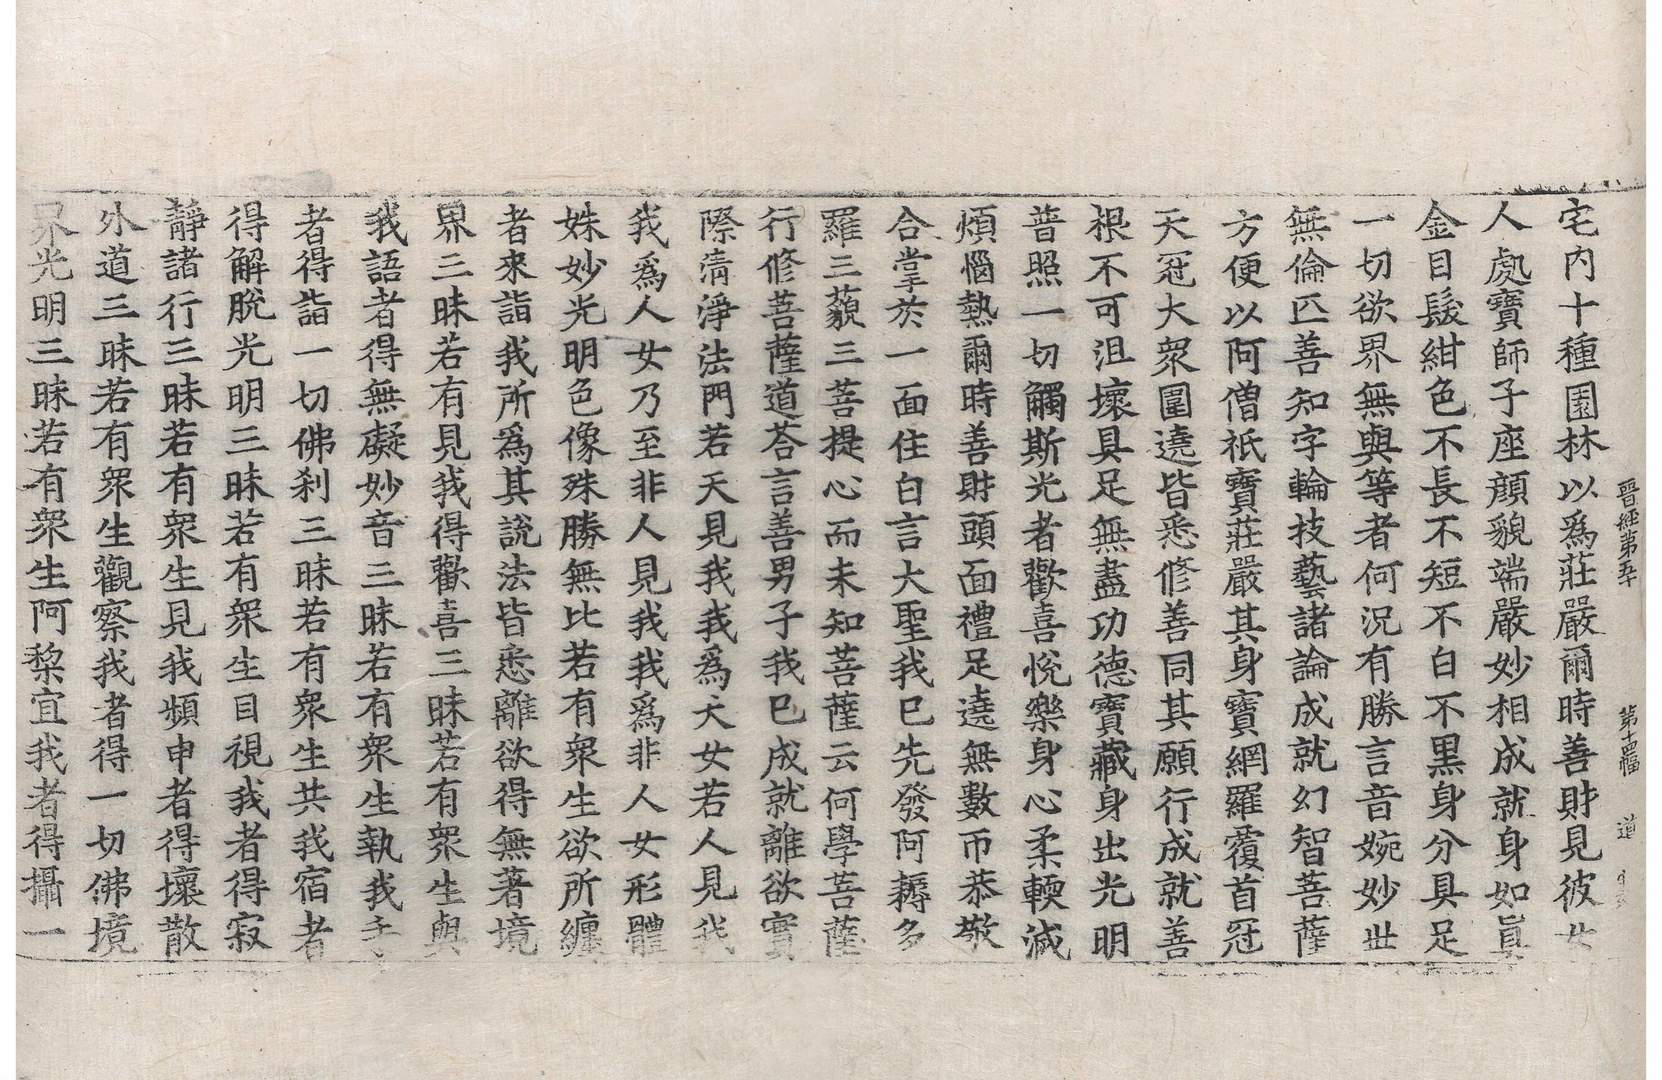 晉經第五十 第十四幅 道
宅内十種園林以爲莊嚴爾時善財見彼女
人處寶師子座顏貌端嚴妙相成就身如眞
金目髮紺色不長不短不白不黑身分具足
一切欲界無與等者何況有勝言音婉妙世
無倫匹善知字輪技藝諸論成就幻智菩薩
方便以阿僧祇寶莊嚴其身寶網羅覆首冠
天冠大衆圍遶皆悉修善同其願行成就善
根不可沮壞具足無盡功德寶藏身出光明
普照一切觸斯光者歡喜悅樂身心柔輭滅
煩惱熱爾時善財頭面禮足遶無數帀恭敬
合掌於一面住白言大聖我已先發阿耨多
羅三藐三菩提心而未知菩薩云何學菩薩
行修菩薩道荅言善男子我已成就離欲實
際淸淨法門若天見我我爲天女若人見我
我爲人女乃至非人見我我爲非人女形體
姝妙光明色像殊勝無比若有衆生欲所纏
者來詣我所爲其說法皆悉離欲得無著境
界三昧若有見我得歡喜三昧若有衆生與
我語者得無礙妙音三昧若有衆生執我手
者得詣一切佛刹三昧若有衆生共我宿者
得解脫光明三昧若有衆生目視我者得寂
靜諸行三昧若有衆生見我頻申者得壞散
外道三昧若有衆生觀察我者得一切佛境
界光明三昧若有衆生阿黎宜我者得攝一